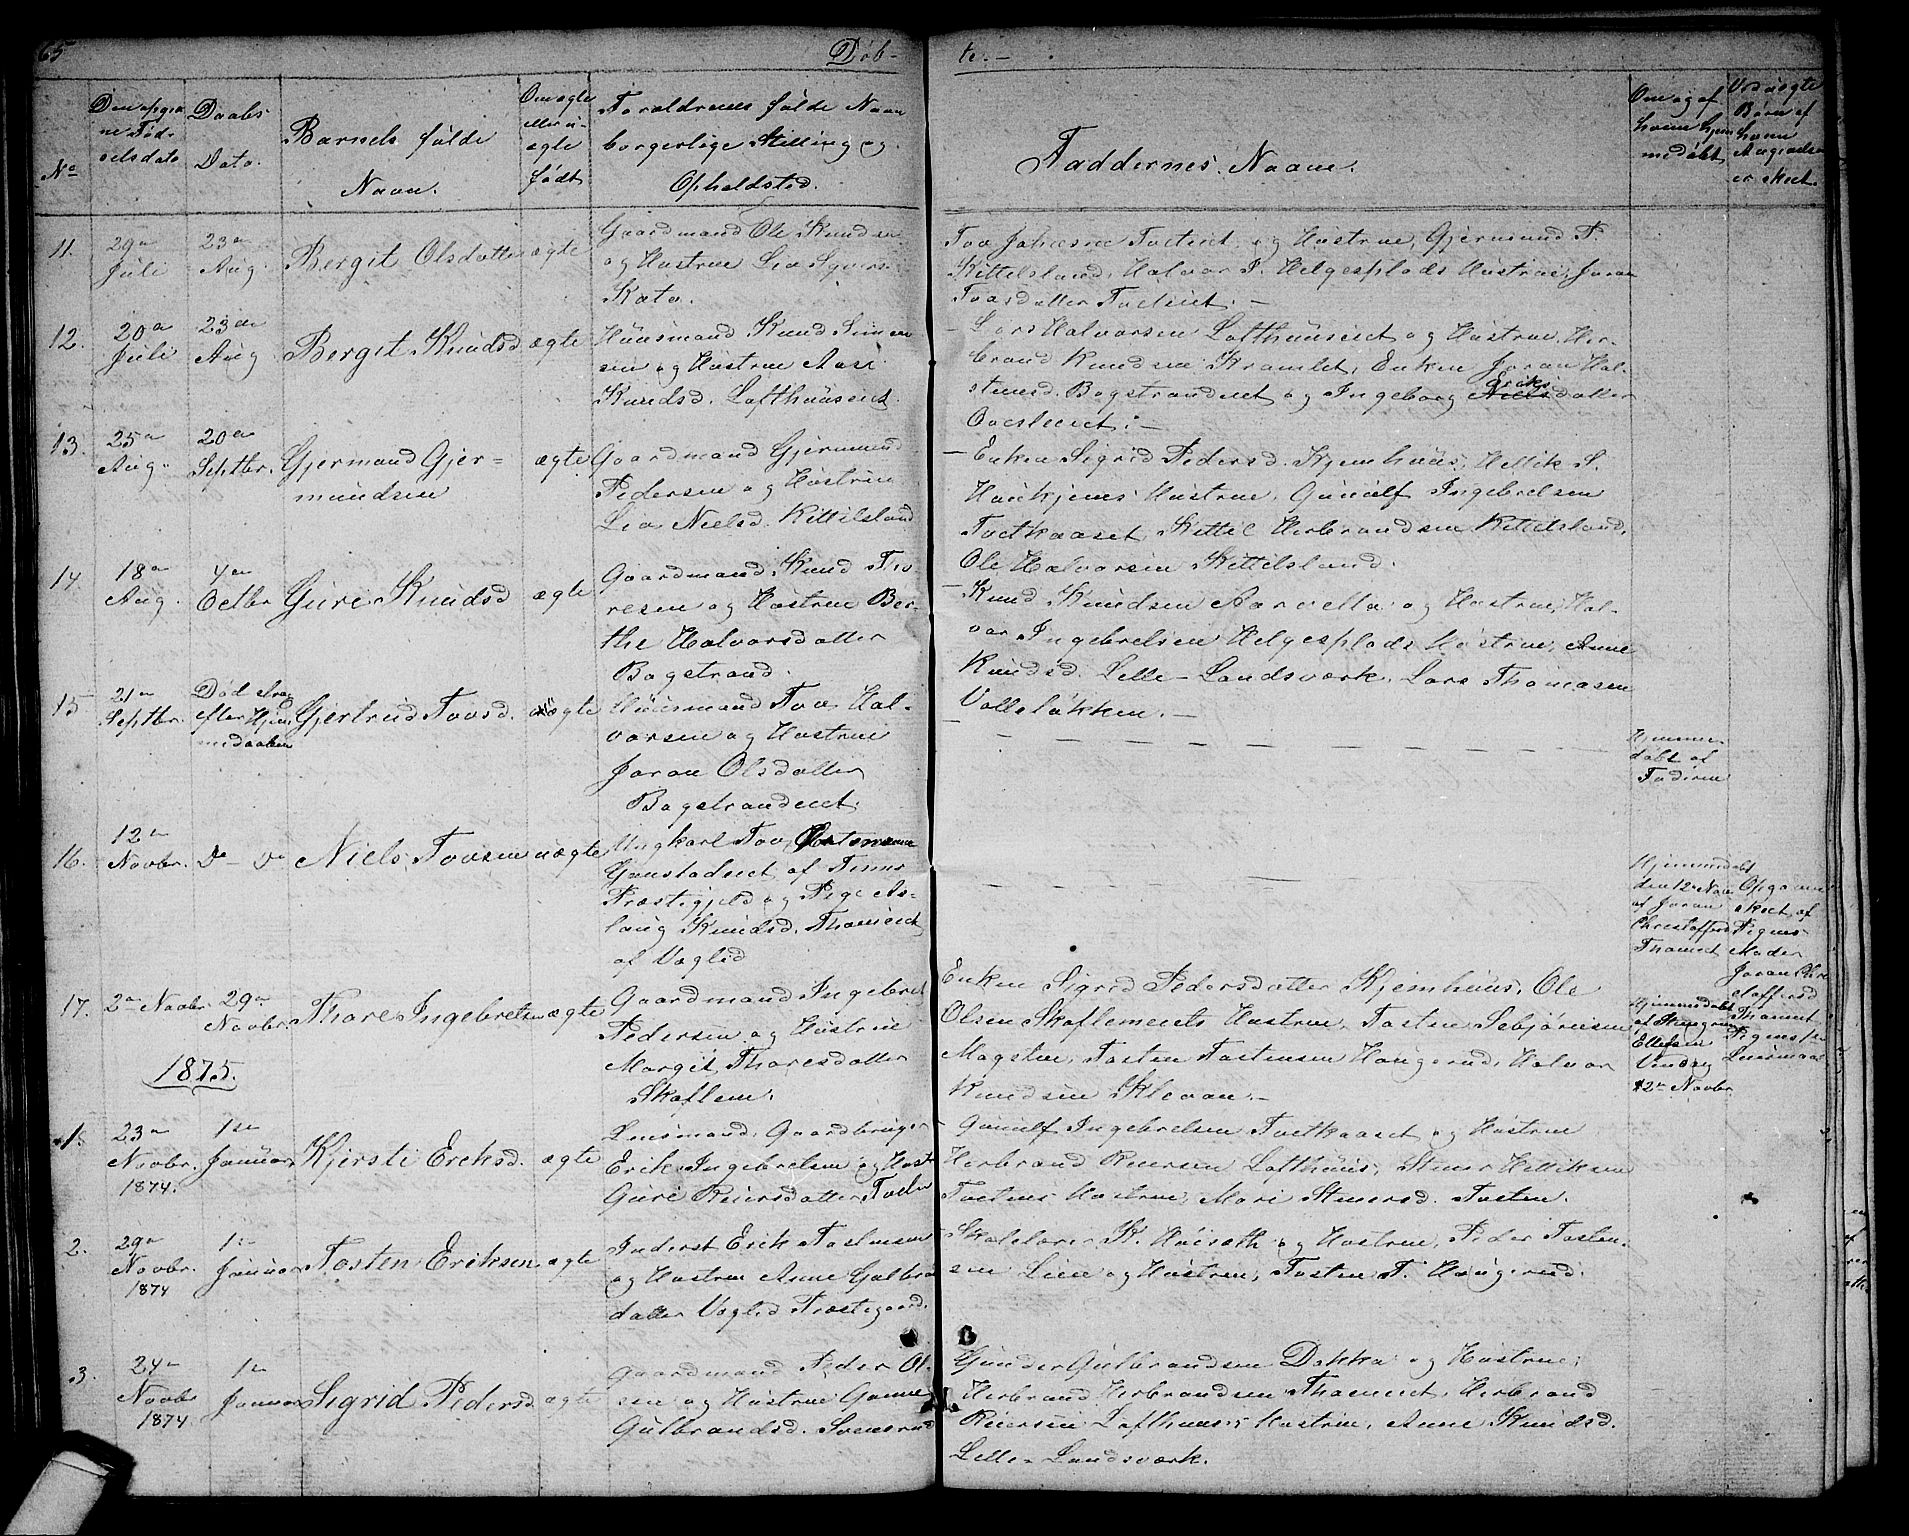 65
Døb-
te.-
No
Den opgivne Fødselsdato
Daabs Dato.
Barnets fulde Navn.
Om ægte eller uægte født
Forældrenes fulde Navn borgerlige Stilling og Opholdsted.
Faddernes Navne.
Om og af hvem hjemmedøbt
Ved uægte Børn af hvem Angivelsen er skeet.
11. 29de Juli
23de Aug.
Bergit Olsdatter ægte
Gaardmand Ole Knudsen
og Hustrue Liv Syvers.
Kata.
Tov Johnsen Tvetenet, og Hustrue, Gjermund P.
Kittelsland, Halvor I. Helgesplads Hustrue, Joran
Tovsdatter Tvetenet.-
12. 20de Juli
23de Aug
Bergit Knudsd ægte
Huusmand Knud Simen
sen og Hustrue Aase
Knudsd. Lofthuuseiet.
Lars Halvorsen Lofthuuseiet og Hustrue, Her-
brand Knudsen Kramlet, Enken Joran Hal-
stensd. Bogstrandeiet og Ingeborg Eriksdatter
Overleeiet.-
13. 25de Aug.
20de Septbr.
Gjermund Gjer=
mundsen ægte
Gaardmand Gjermund
Pedersen og Hustrue
Liv Nielsd. Kittilsland
Enken Sigrid Pedersd. Kjemhuus, Hellik S.
Haukjems Hustrue, Gunulf Ingebretsen
Tvetkaaset, Kittil Herbrandsen Kittilsland,
Ole Halvorsen Kittilsland.
14. 18de Aug.
4de Octbr
Guri Knudsd ægte
Gaardmand Knud To
resen og Hustrue Ber-
the Halvorsdatter
Bogstrand.
Knud Knudsen Aarvella og Hustrue, Hal-
vor Ingebretsen Helgesplads Hustrue, Anne
Knudsd. Lille-Landsværk, Lars Thomasen
Volleløkken.-
15 21de Septbr.
Død strax efter Hjem medaaben
Gjertrud Tovsd. ægte
Huusmand Tov Hal-
vorsen og Hustrue
Joran Olsdatter
Bogstrandeiet.
Hjemme
døbt af
Faderen
16. 12te Novbr.
Do - Do
Niels Tovsen uægte
Ungkarl Tov
Grustadeiet af Tinns
Præstegjeld og Pige As-
laug Knudsd. Thameiet
af Veglid
Hjemmedøbt
den 12te Nov
af Joran
Christoffersd
Thameiet
Opgivelsen
skeet af
Pigens
Moder
Joran Chri
stoffersd
Thameiet
17. 2den Novbr.
29de Novbr
Thore Ingebretsen ægte
Gaardmand Ingebret
Pedersen og Hustrue
Margit Thoresdatter
Skaflem.
Enken Sigrid Pedersdatter Kjemhuus, Ole
Olsen Skaflemeiets Hustrue, Tosten Sebjørnsen
Mogsten, Tosten Tostensen Haugerud, Halvor
Knudsen Klevan.-
Hjemmedøbt
af Steingrim
Ellefsen
Vindeg
12te Novbr.
1875.
1. 23de Novbr. 1874.
1ste Januar
Kjersti Eriksd. ægte
Lensmand, Gaardbruger
Erik Ingebretsen og Hust
Guri Reiersdatter Tosten
Gunulf Ingebretsen Tvetkaaset og Hustrue
Herbrand Reiersen Lofthuus, Stener Helliksen
Tostens Hustrue, Mari Stenersd. Tosten.
2. 29de Novbr. 1874
1ste Januar
Tosten Eriksen ægte
Inderst Erik Tostensen
og Hustrue Anne Gulbrands
datter Veglid Præstegaard.
Skolelærer K. Huuseth og Hustrue, Peder Tosten-
sen Lien og Hustrue, Tosten T. Haugerud.
3. 24de Novbr 1874
1ste Januar
Sigrid Pedersd ægte
Gaardmand Peder Ol-
sen og Hustrue Gunne
Gulbrandsd. Svenerud
Gunder Gulbrandsen Dokka og Hustrue,
Herbrand Herbrandsen Thameiet, Herbrand
Reiersen Lofthuus's Hustrue, Anne Knudsd.
Lille-Landsværk.